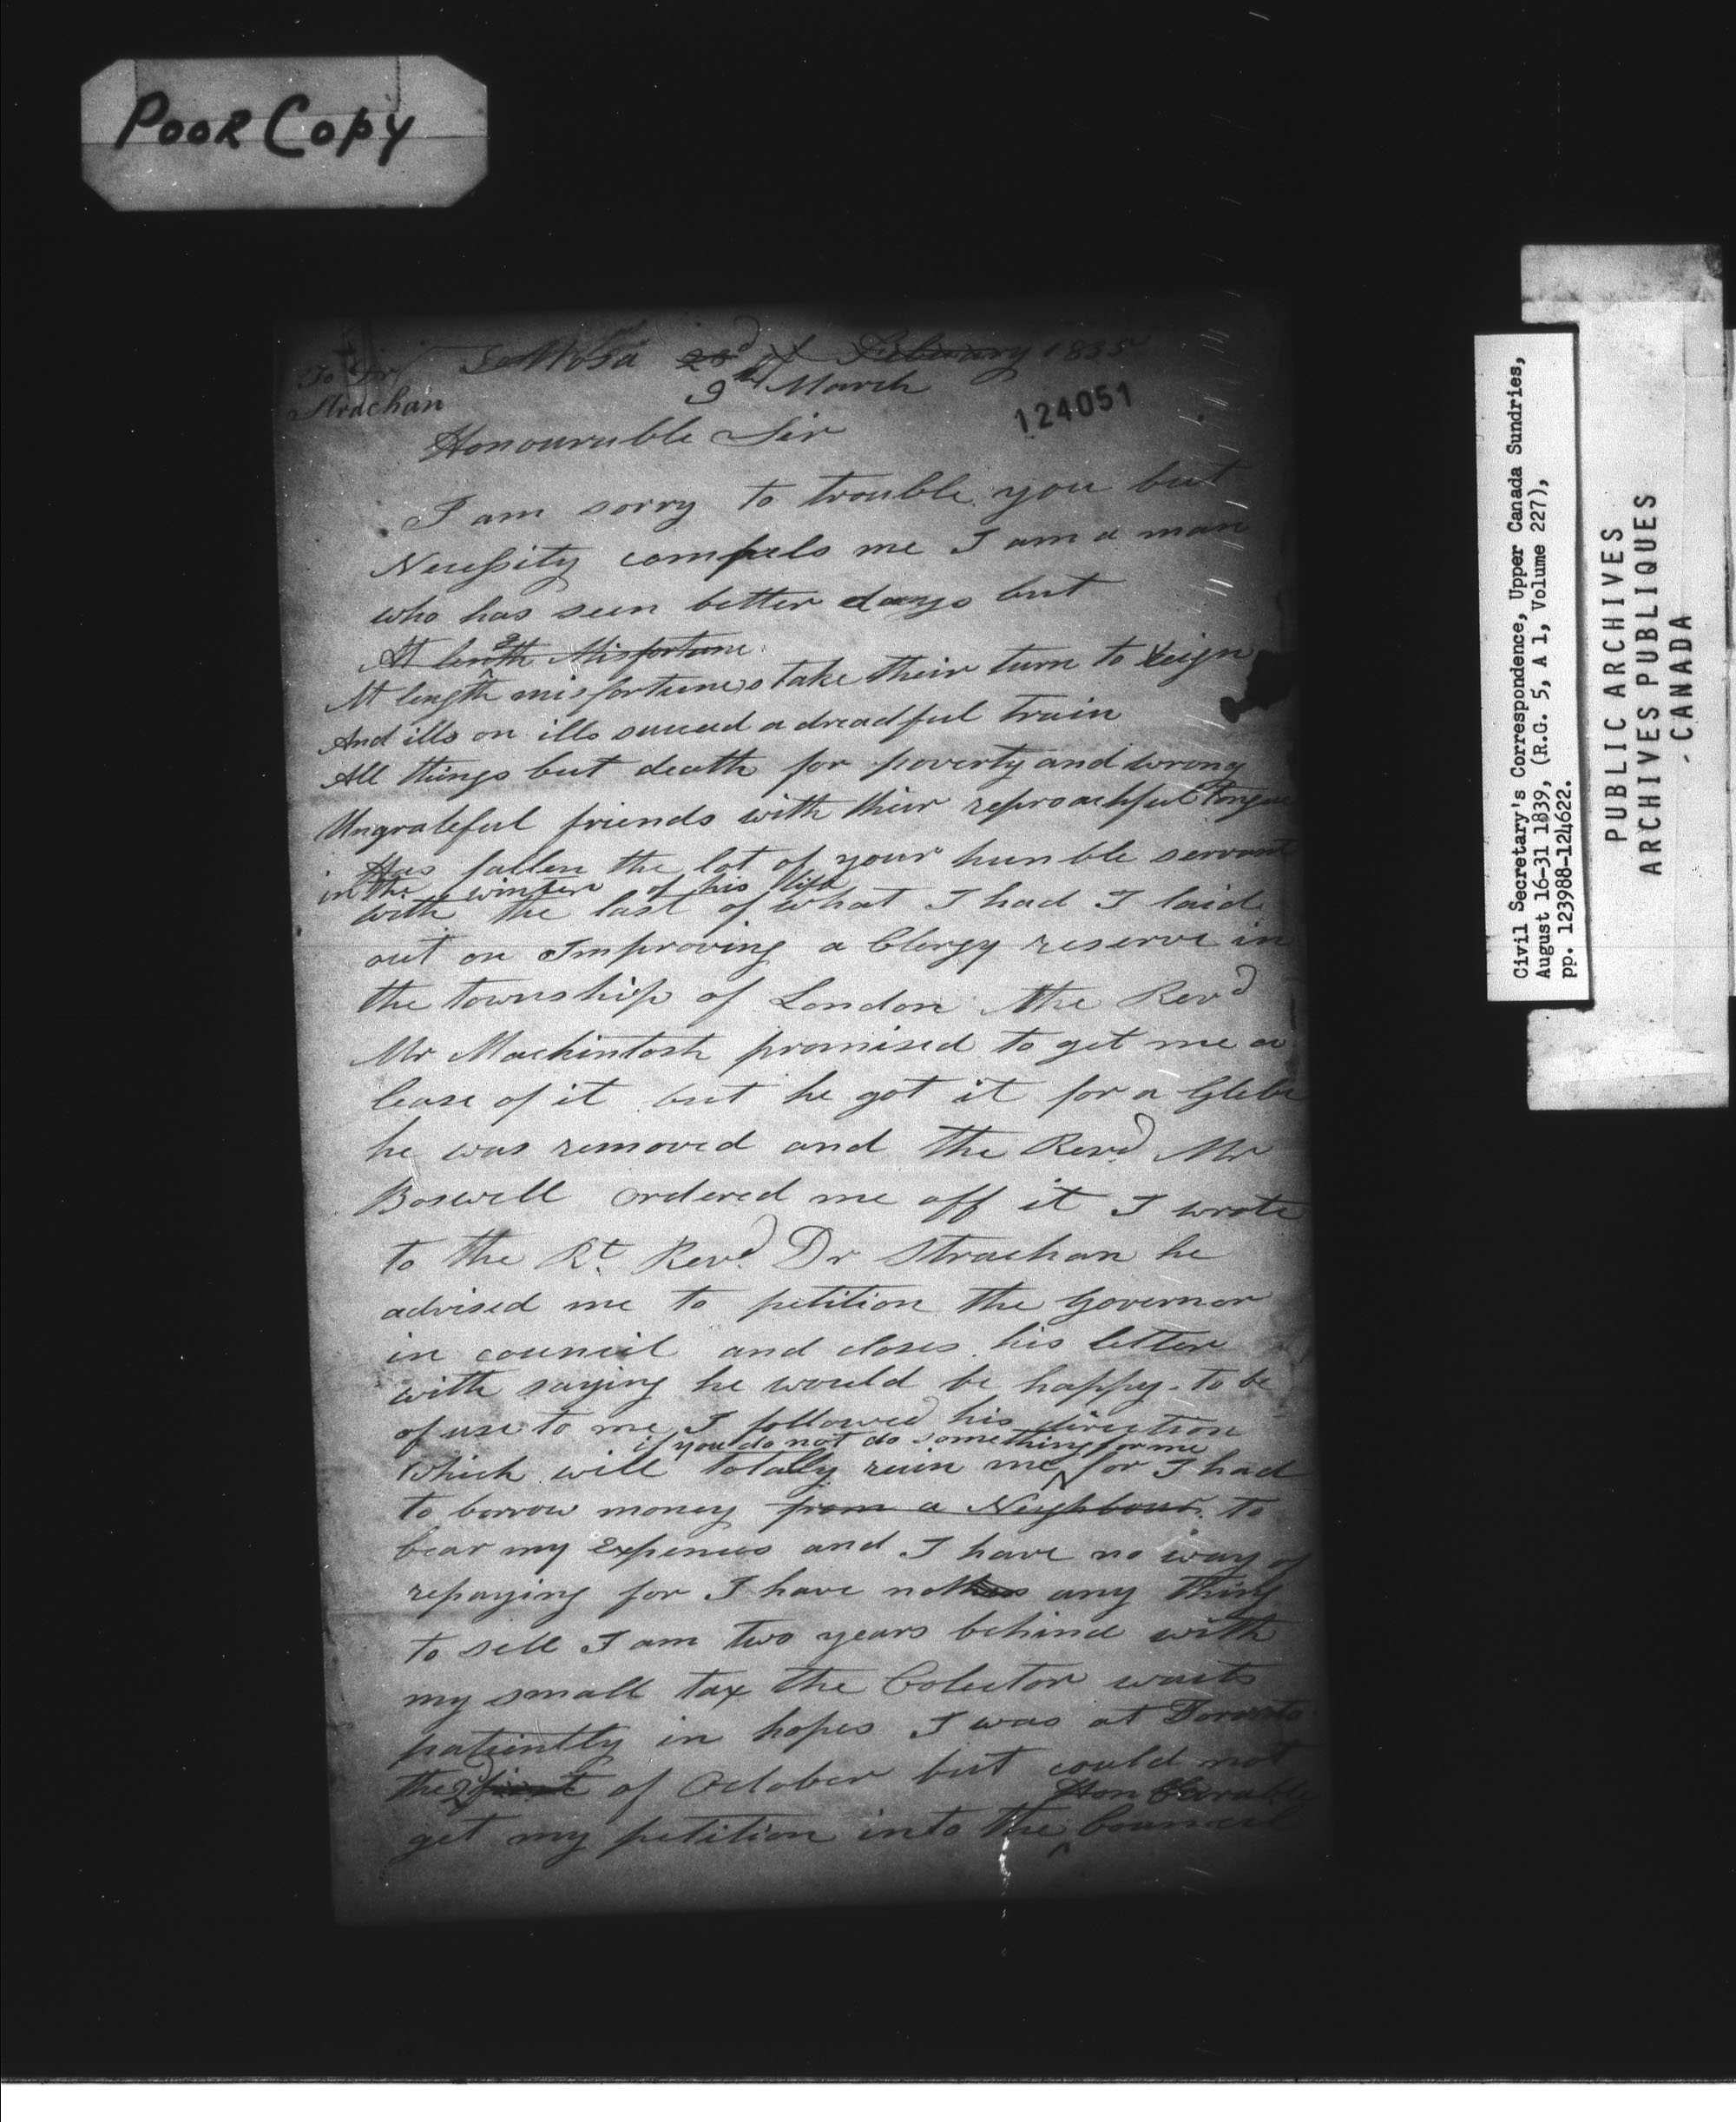 Poor Copy
To Dr
Strachan
23d of February 1835
9th March
124051
Honourable Sir
I am sorry to trouble you but
Necessity compels me I am a man
who has seen better days but
At length Misfortune
At length misfortunes take their turn to reign
And ills on ills succeed a dreadful train
All things but death for poverty and wrong
Ungrateful friends with their reproachful tongue
Has fallen the lot of your humble servant
in the winter of his life
with the last of what I had I laid
out on Improving a Clergy reserve in
the township of London the Revd
Mr Mackintosh promised to get me a
lease of it but he got it for a Glebe
he was removed and the Revd Mr
Boswell ordered me off it I wrote
to the Rt Revd Dr Strachan he
advised me to petition the Governor
in council and closes his letter
with saying he would be happy to be
of use to me I followed his direction
if you do not do something for me
which will totally ruin me ^ for I had
to borrow money from a Neighbour to
bear my Expences and I have no way of
repaying for I have not any thing
to sell I am two years behind with
my small tax the Colector waits
patiently in hopes I was at Toronto
the first of October but could not
Honourable
get my petition into the ^ Council
Civil Secretary's Correspondence, Upper Canada Sundries,
August 16-31 1839, (R.G. 5, A 1, Volume 227),
pp. 123988-124622.
PUBLIC ARCHIVES
ARCHIVES PUBLIQUES
CANADA